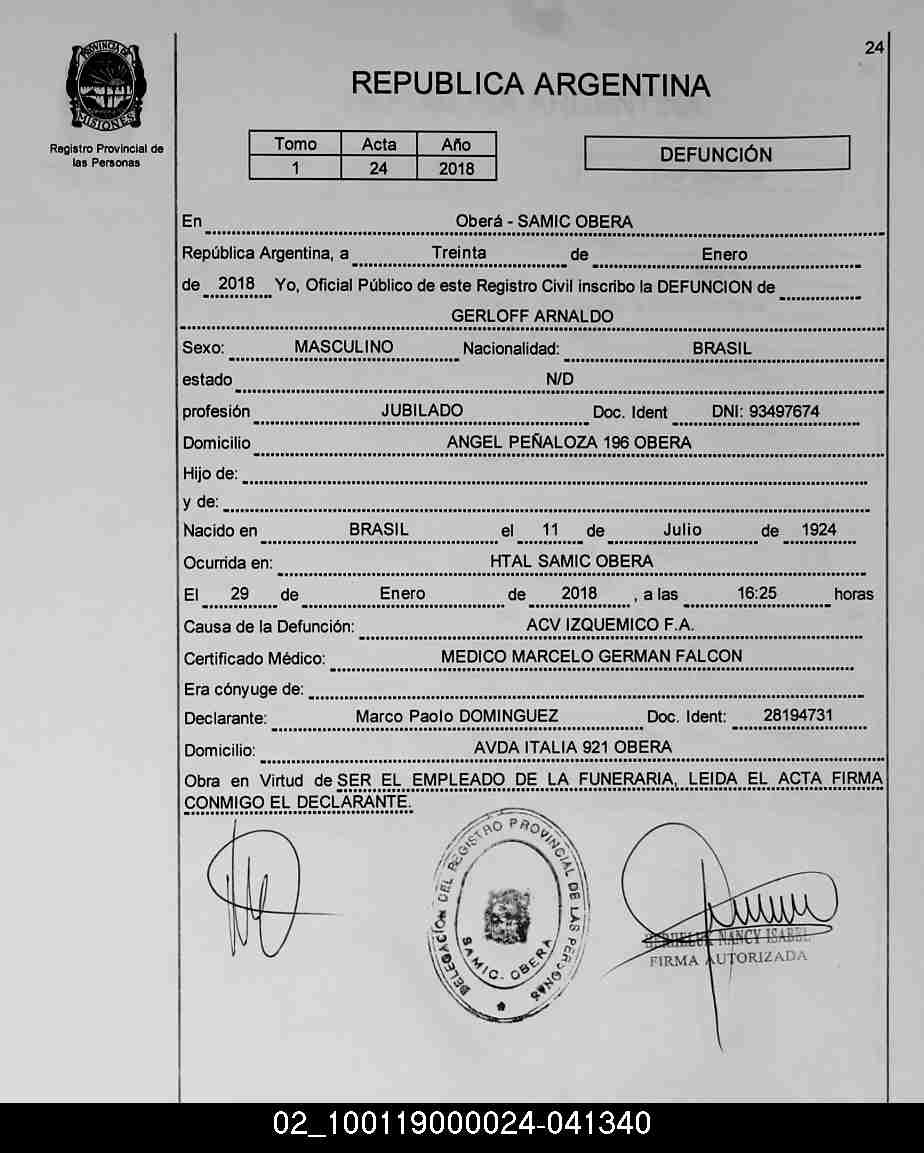 24
PROVINCIA DE
MISIONES
Registro Provincial de
las Personas
REPUBLICA ARGENTINA
Tomo Acta Año
1 24 2018
DEFUNCIÓN
En Oberá - SAMIC OBERA
República Argentina, a Treinta de Enero
de 2018 Yo, Oficial Público de este Registro Civil inscribo la DEFUNCION de
GERLOFF ARNALDO
Sexo: MASCULINO Nacionalidad: BRASIL
estado N/D
profesión JUBILADO Doc. Ident DNI: 93497674
Domicilio ANGEL PEÑALOZA 196 OBERA
Hijo de:
y de:
Nacido en BRASIL el 11 de Julio de 1924
Ocurrida en: HTAL SAMIC OBERA
El 29 de Enero de 2018 , a las 16:25 horas
Causa de la Defunción: ACV IZQUEMICO F.A.
Certificado Médico: MEDICO MARCELO GERMAN FALCON
Era cónyuge de:
Declarante: Marco Paolo DOMINGUEZ Doc. Ident: 28194731
Domicilio: AVDA ITALIA 921 OBERA
Obra en Virtud de SER EL EMPLEADO DE LA FUNERARIA, LEIDA EL ACTA FIRMA
CONMIGO EL DECLARANTE.
DELEGACIÓN DEL REGISTRO PROVINCIAL DE LAS PERSONAS
SAMIC - OBERA
NANCY ISABEL
FIRMA AUTORIZADA
02_100119000024-041340